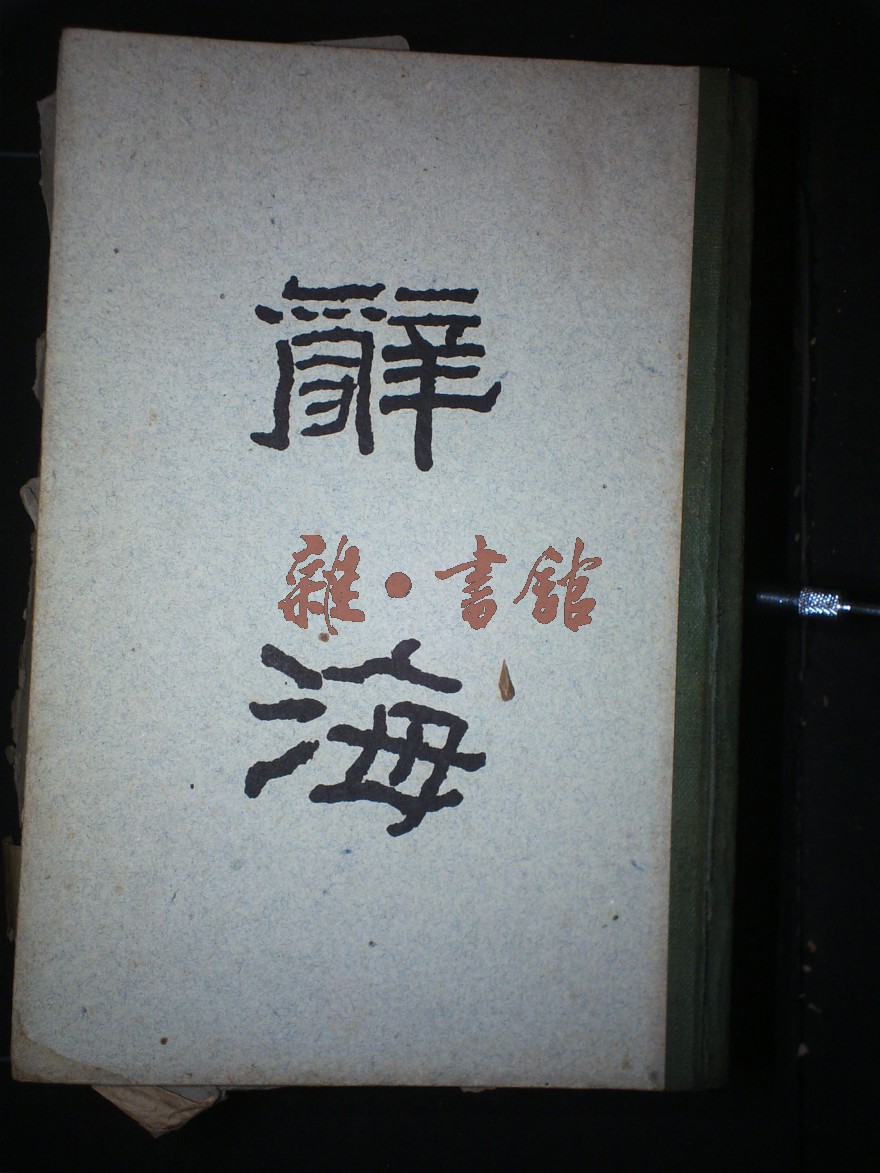 辭
雜·書館
海